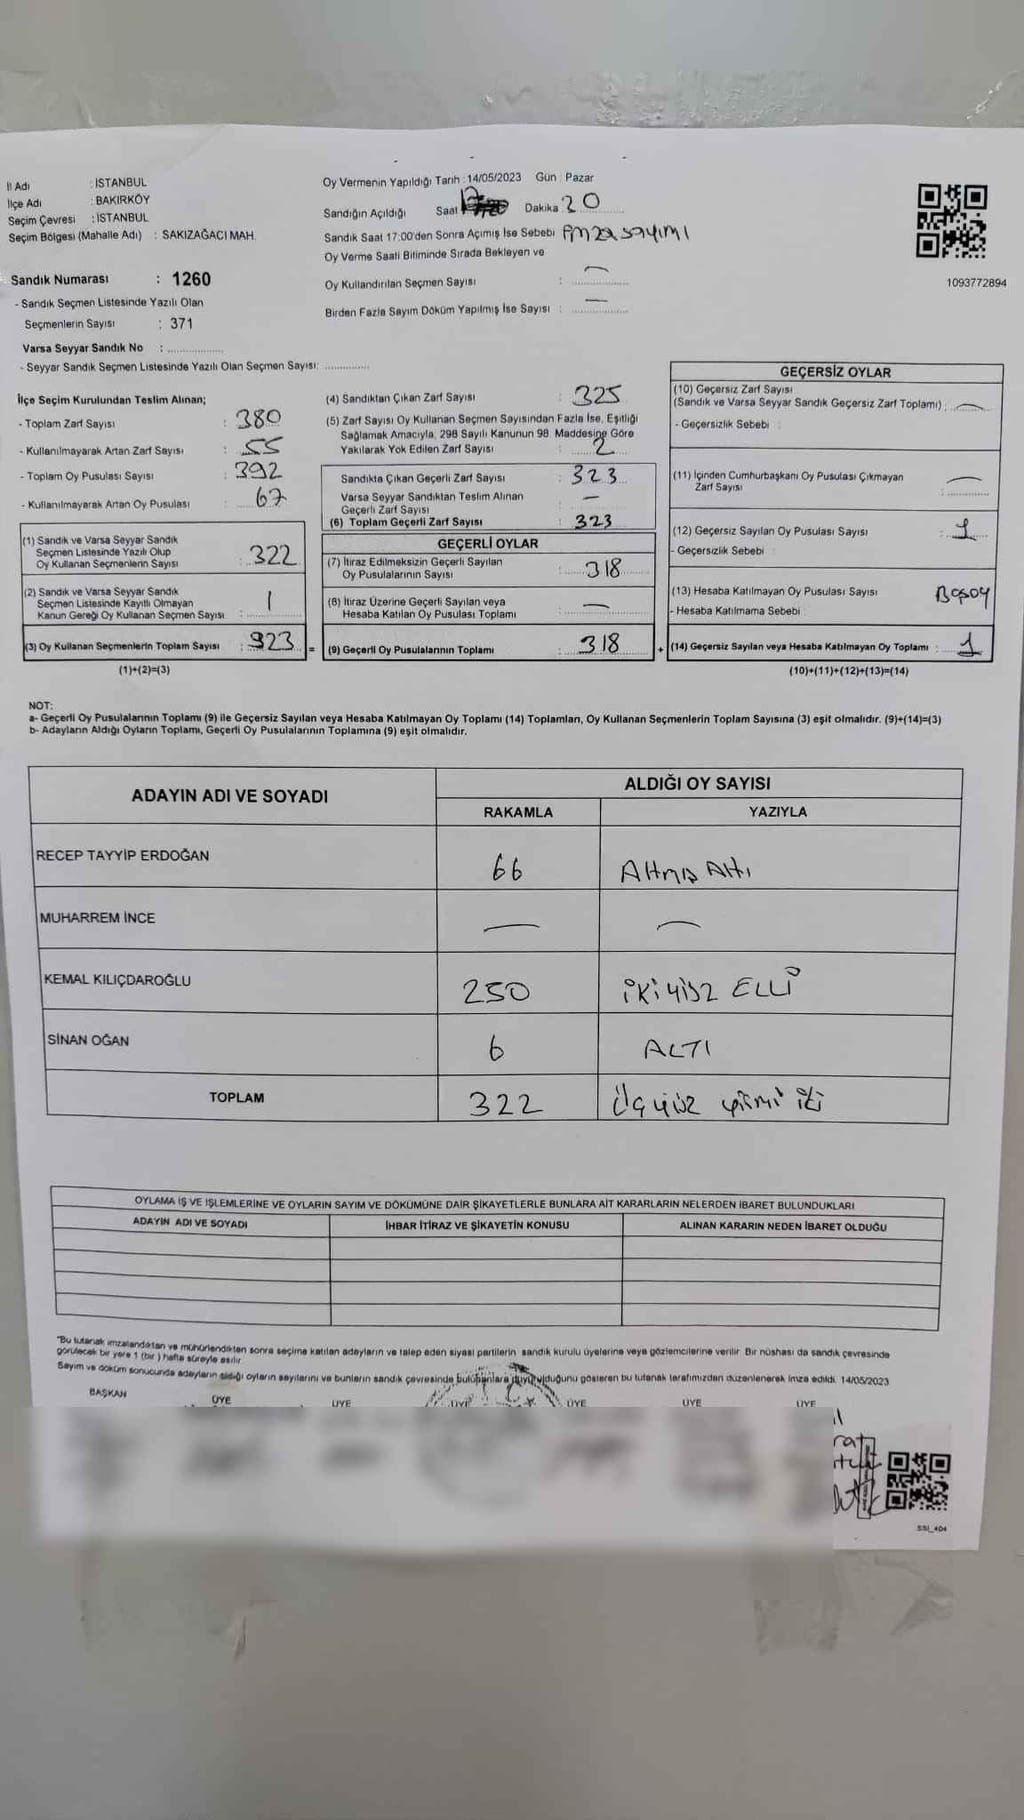 İl Adı : İSTANBUL
İlçe Adı : BAKIRKÖY
Seçim Çevresi : İSTANBUL
Seçim Bölgesi (Mahalle Adı) : SAKIZAĞACI MAH.
Sandık Numarası : 1260
- Sandık Seçmen Listesinde Yazılı Olan
Seçmenlerin Sayısı : 371
Varsa Seyyar Sandık No :
- Seyyar Sandık Seçmen Listesinde Yazılı Olan Seçmen Sayısı:
Oy Vermenin Yapıldığı Tarih : 14/05/2023 Gün : Pazar
Sandığın Açıldığı Saat Dakika 20
Sandık Saat 17:00'den Sonra Açımış İse Sebebi imza sayımı
Oy Verme Saati Bitiminde Sırada Bekleyen ve
Oy Kullandırılan Seçmen Sayısı : —
Birden Fazla Sayım Döküm Yapılmış İse Sayısı : —
1093772894
İlçe Seçim Kurulundan Teslim Alınan;
- Toplam Zarf Sayısı : 380
- Kullanılmayarak Artan Zarf Sayısı : 55
- Toplam Oy Pusulası Sayısı : 392
- Kullanılmayarak Artan Oy Pusulası : 67
(1) Sandık ve Varsa Seyyar Sandık
Seçmen Listesinde Yazılı Olup
Oy Kullanan Seçmenlerin Sayısı : 322
(2) Sandık ve Varsa Seyyar Sandık
Seçmen Listesinde Kayıtlı Olmayan
Kanun Gereği Oy Kullanan Seçmen Sayısı : 1
(3) Oy Kullanan Seçmenlerin Toplam Sayısı : 323 =
(1)+(2)=(3)
(4) Sandıktan Çıkan Zarf Sayısı : 325
(5) Zarf Sayısı Oy Kullanan Seçmen Sayısından Fazla İse, Eşitliği
Sağlamak Amacıyla, 298 Sayılı Kanunun 98. Maddesine Göre
Yakılarak Yok Edilen Zarf Sayısı : 2
Sandıkta Çıkan Geçerli Zarf Sayısı : 323
Varsa Seyyar Sandıktan Teslim Alınan
Geçerli Zarf Sayısı : —
(6) Toplam Geçerli Zarf Sayısı : 323
GEÇERLİ OYLAR
(7) İtiraz Edilmeksizin Geçerli Sayılan
Oy Pusulalarının Sayısı : 318
(8) İtiraz Üzerine Geçerli Sayılan veya
Hesaba Katılan Oy Pusulası Toplamı : —
(9) Geçerli Oy Pusulalarının Toplamı : 318 +
GEÇERSİZ OYLAR
(10) Geçersiz Zarf Sayısı
(Sandık ve Varsa Seyyar Sandık Geçersiz Zarf Toplamı) : —
- Geçersizlik Sebebi :
(11) İçinden Cumhurbaşkanı Oy Pusulası Çıkmayan
Zarf Sayısı : —
(12) Geçersiz Sayılan Oy Pusulası Sayısı : 1
- Geçersizlik Sebebi :
(13) Hesaba Katılmayan Oy Pusulası Sayısı :
- Hesaba Katılmama Sebebi :
(14) Geçersiz Sayılan veya Hesaba Katılmayan Oy Toplamı : 1
(10)+(11)+(12)+(13)=(14)
NOT:
a- Geçerli Oy Pusulalarının Toplamı (9) ile Geçersiz Sayılan veya Hesaba Katılmayan Oy Toplamı (14) Toplamları, Oy Kullanan Seçmenlerin Toplam Sayısına (3) eşit olmalıdır. (9)+(14)=(3)
b- Adayların Aldığı Oyların Toplamı, Geçerli Oy Pusulalarının Toplamına (9) eşit olmalıdır.
ADAYIN ADI VE SOYADI
ALDIĞI OY SAYISI
RAKAMLA YAZIYLA
RECEP TAYYİP ERDOĞAN 66 Altmış Altı
MUHARREM İNCE — —
KEMAL KILIÇDAROĞLU 250 İKİ yüz ELLİ
SİNAN OĞAN 6 ALTI
TOPLAM 322 Üç yüz yirmi iki
OYLAMA İŞ VE İŞLEMLERİNE VE OYLARIN SAYIM VE DÖKÜMÜNE DAİR ŞİKAYETLERLE BUNLARA AİT KARARLARIN NELERDEN İBARET BULUNDUKLARI
ADAYIN ADI VE SOYADI İHBAR İTİRAZ VE ŞİKAYETİN KONUSU ALINAN KARARIN NEDEN İBARET OLDUĞU
"Bu tutanak imzalandıktan ve mühürlendikten sonra seçime katılan adayların ve talep eden siyasi partilerin sandık kurulu üyelerine veya gözlemcilerine verilir. Bir nüshası da sandık çevresinde
görülecek bir yere 1 (bir) hafta süreyle asılır.
Sayım ve döküm sonucunda adayların aldığı oyların sayılarını ve bunların sandık çevresinde olduğunu gösteren bu tutanak tarafımızdan düzenlenerek imza edildi. 14/05/2023
BAŞKAN ÜYE ÜYE ÜYE ÜYE ÜYE ÜYE
SSİ_404